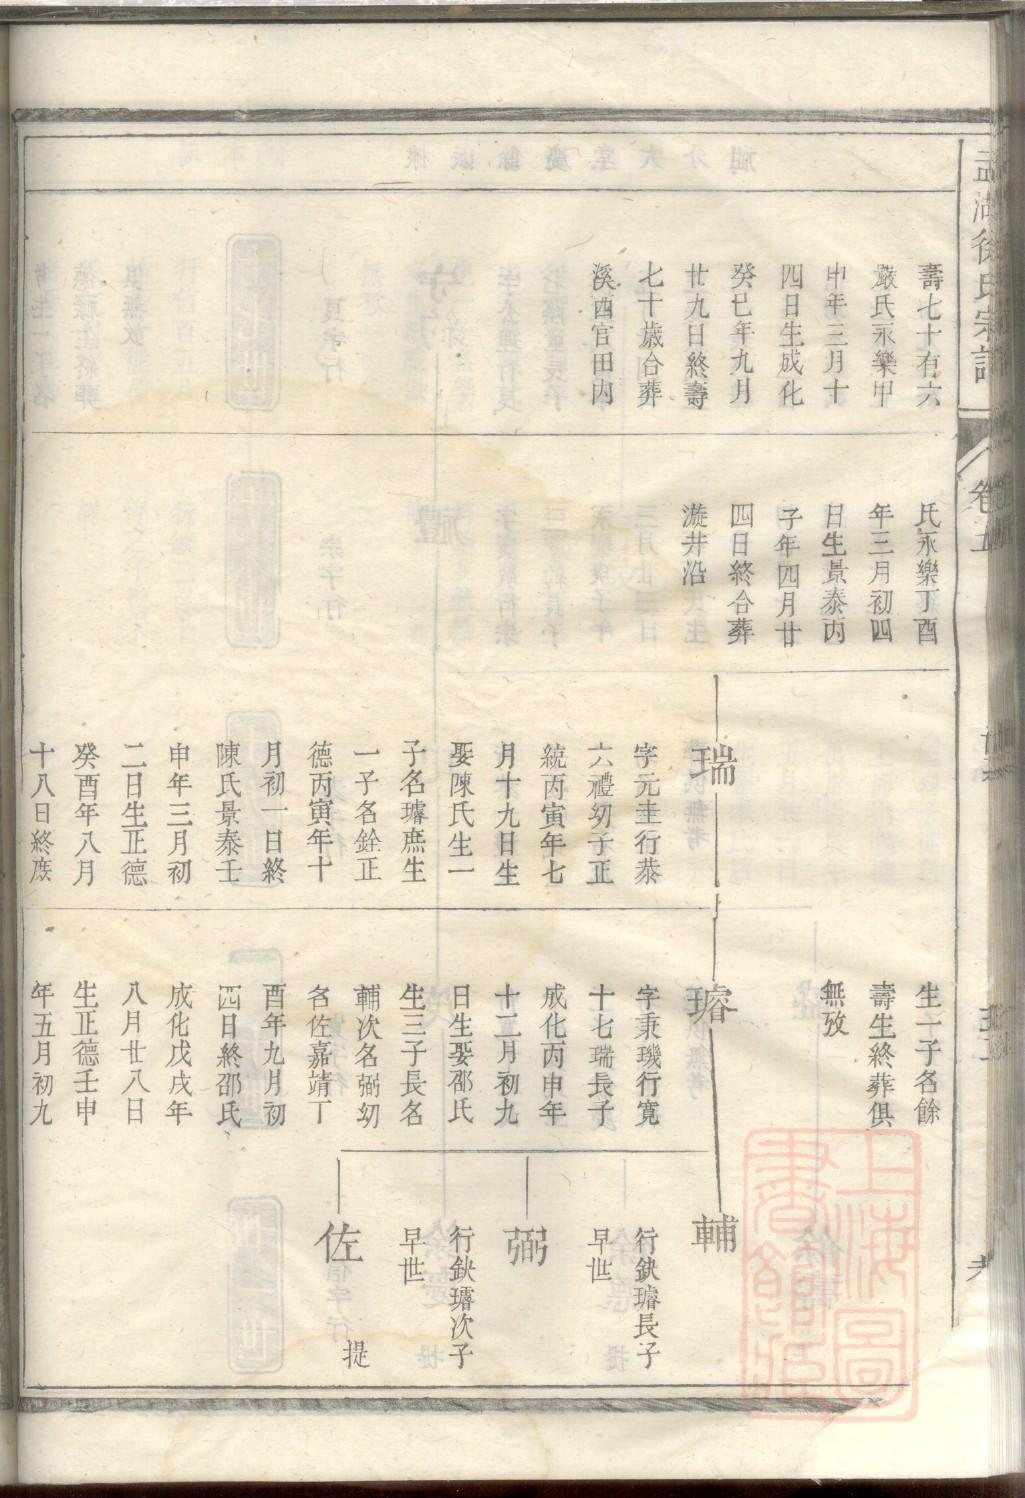 壽七十有六
嚴氏永樂甲
申年三月十
四日生成化
癸巳年九月
廿九日終壽
七十歲合葬
溪西官田內
氏永樂丁酉
年三月初四
日生景泰丙
子年四月廿
四日終合葬
漩井沿
瑞
字元圭行恭
六禮幼子正
統丙寅年七
月十九日生
娶陳氏生一
子名璿庶生
一子名銓正
德丙寅年十
月初一日終
陳氏景泰壬
申年三月初
二日生正德
癸酉年八月
十八日終庶
生一子名餘
壽生終葬俱
無攷
璿
字秉璣行寬
十七瑞長子
成化丙申年
十二月初九
日生娶邵氏
生三子長名
輔次名弼幼
名佐嘉靖丁
酉年九月初
四日終邵氏
成化戊戌年
八月廿八日
生正德壬申
年五月初九
輔
行鈌璿長子
早世
弼
行鈌璿次子
早世
佐
提
徐氏宗譜
卷五
上海圖
書館藏